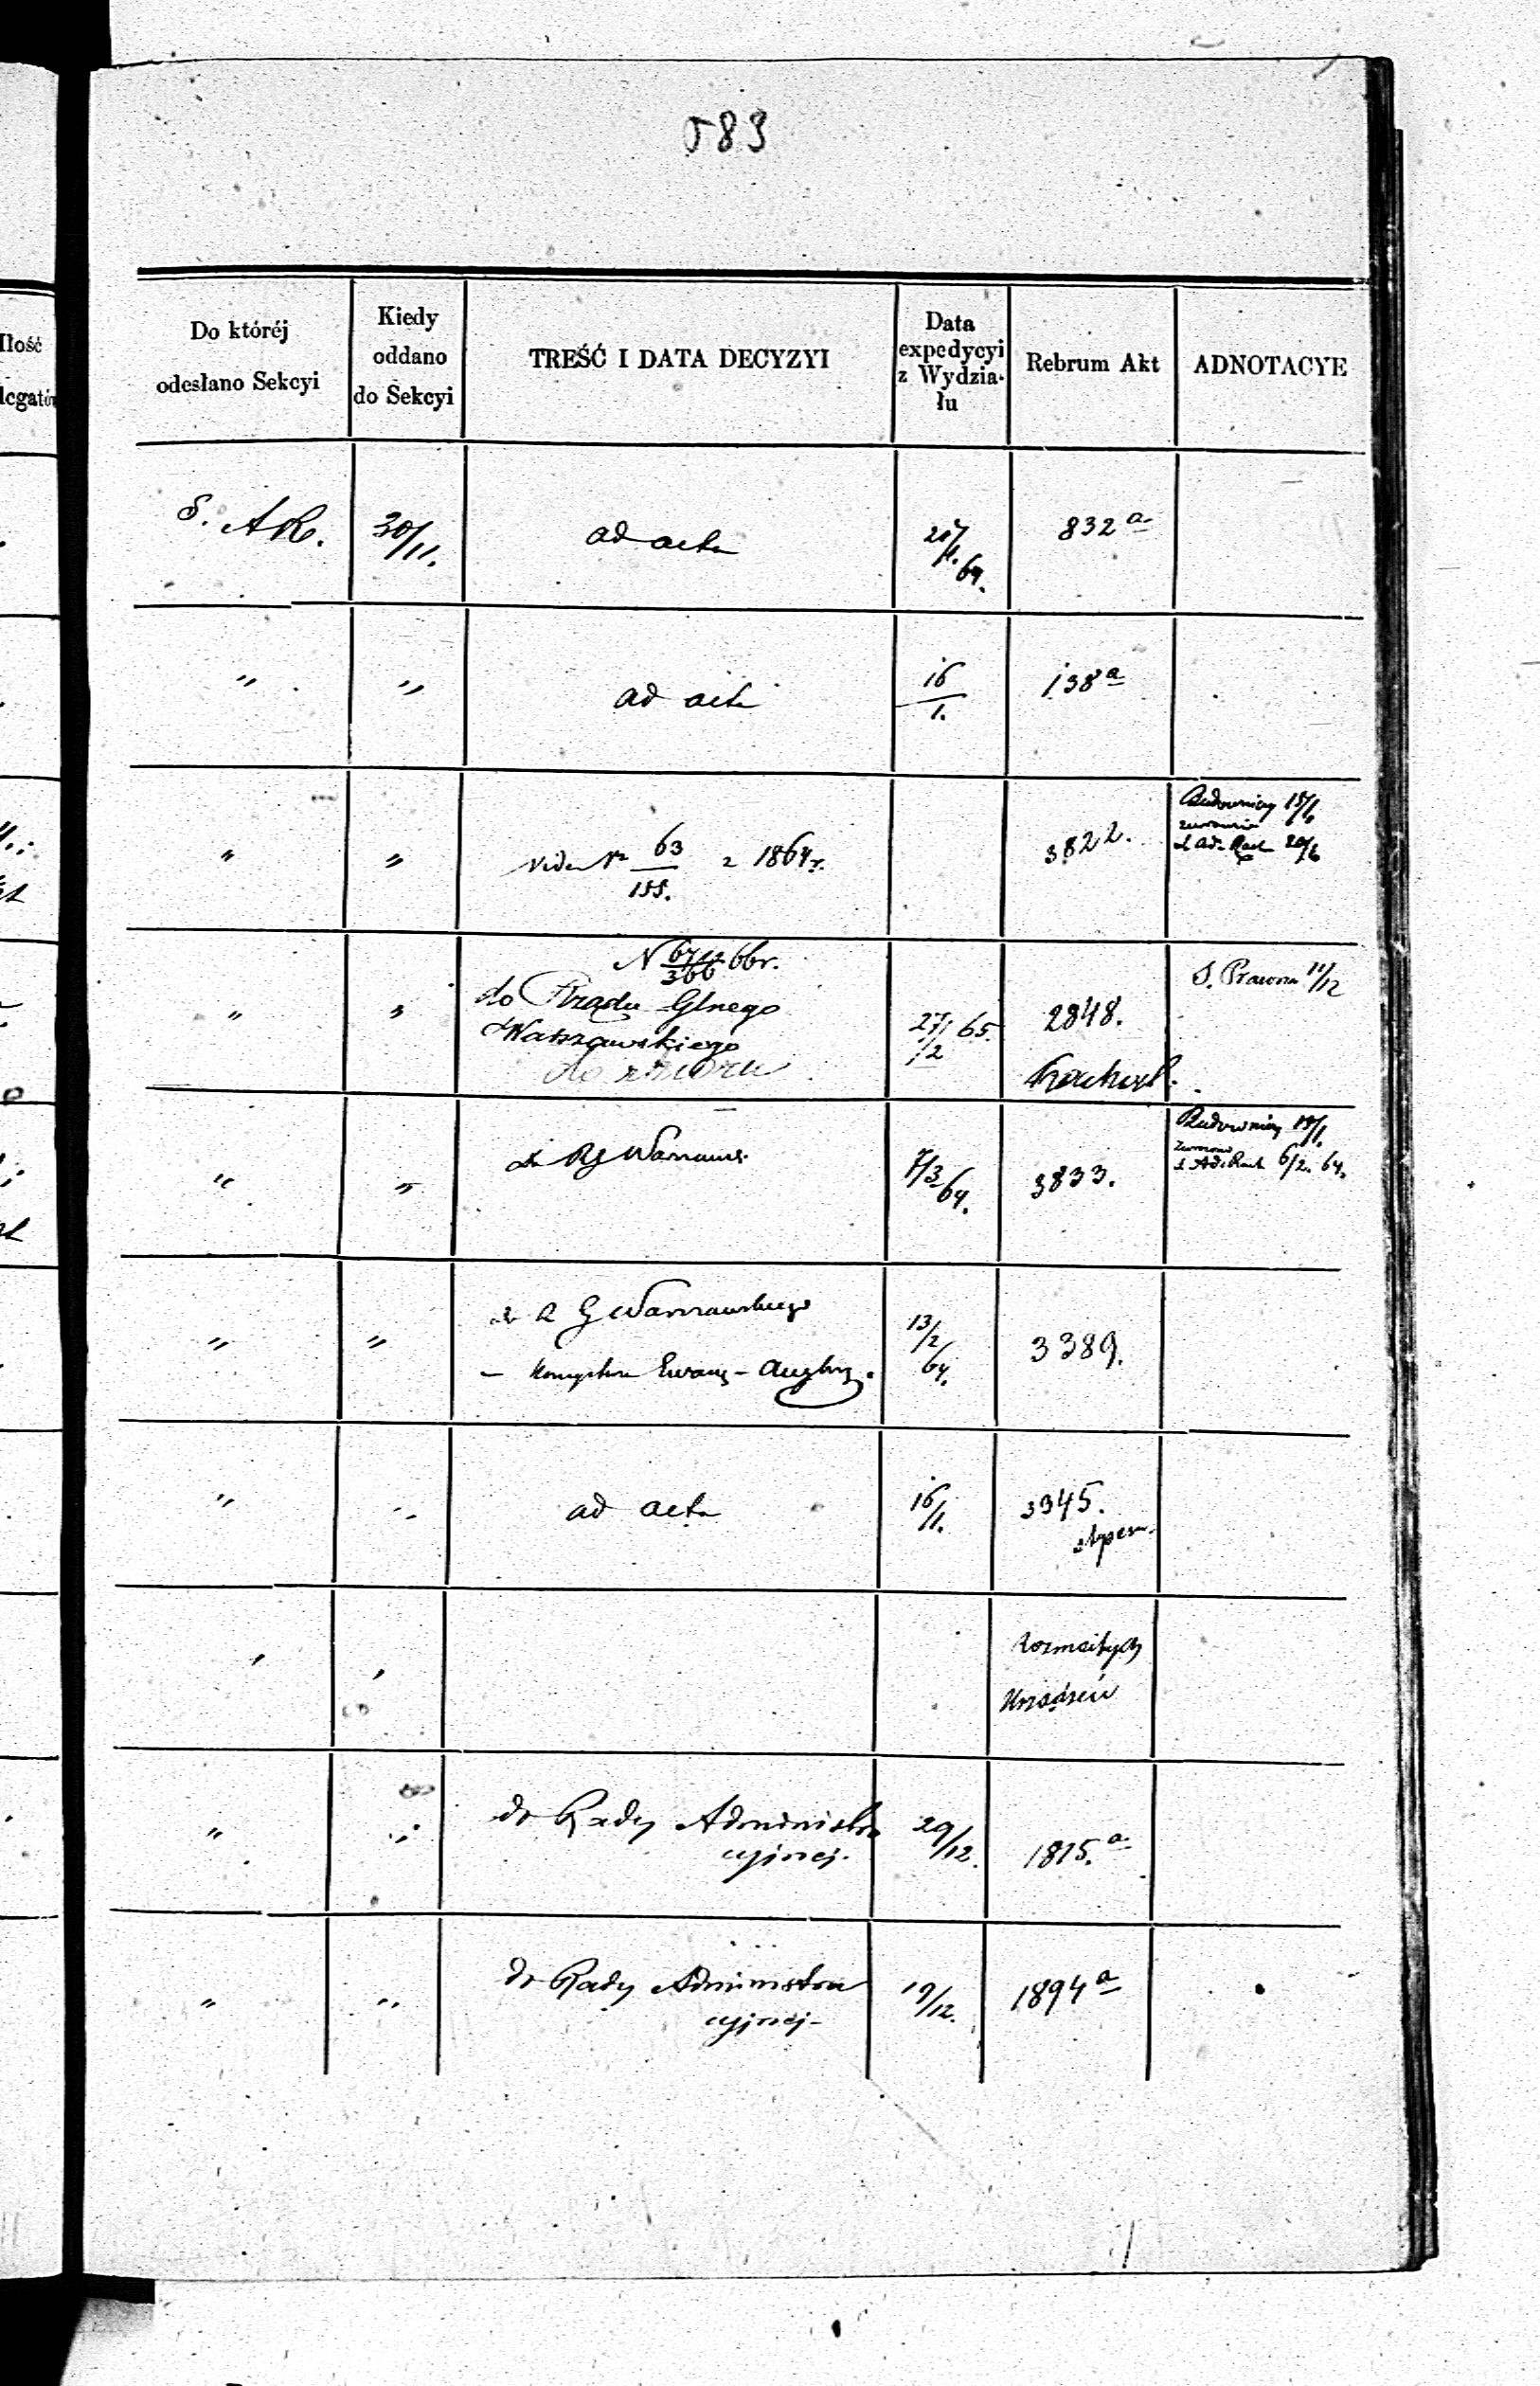 583
Ilość
legatów
Do któréj
odesłano Sekcyi
Kiedy
oddano
do Sekcyi
TREŚĆ I DATA DECYZYI
Data
expedycyi
z Wydzia-
łu
Rebrum Akt
ADNOTACYE
S. AR. 30/11. ad acta 64. 832 a
" " ad acta 16/1. 138 a
" " Vide Nr 63/155. z 1864 r. 3822.
Budowniczy
20/6
" " N 66 r.
do Rządu Glnego
Warszawskiego
do zwrotu
27/12 65. 2848. S. Prawna 11/12
" " do RG Warszaws. 7/3 64. 3833.
Budowniczy
6/2. 64.
" " do R G Warszawskiego
– Konsystorza Ewang – Augsburg.
13/2 64. 3389.
" " ad acta 16/1. 3345.
stypen.
" " Rozmaitych
Urządzeń
" " do Rady Administra
cyjnej.
29/12. 1815. a
" " do Rady Administra
cyjnej –
19/12. 1894 a